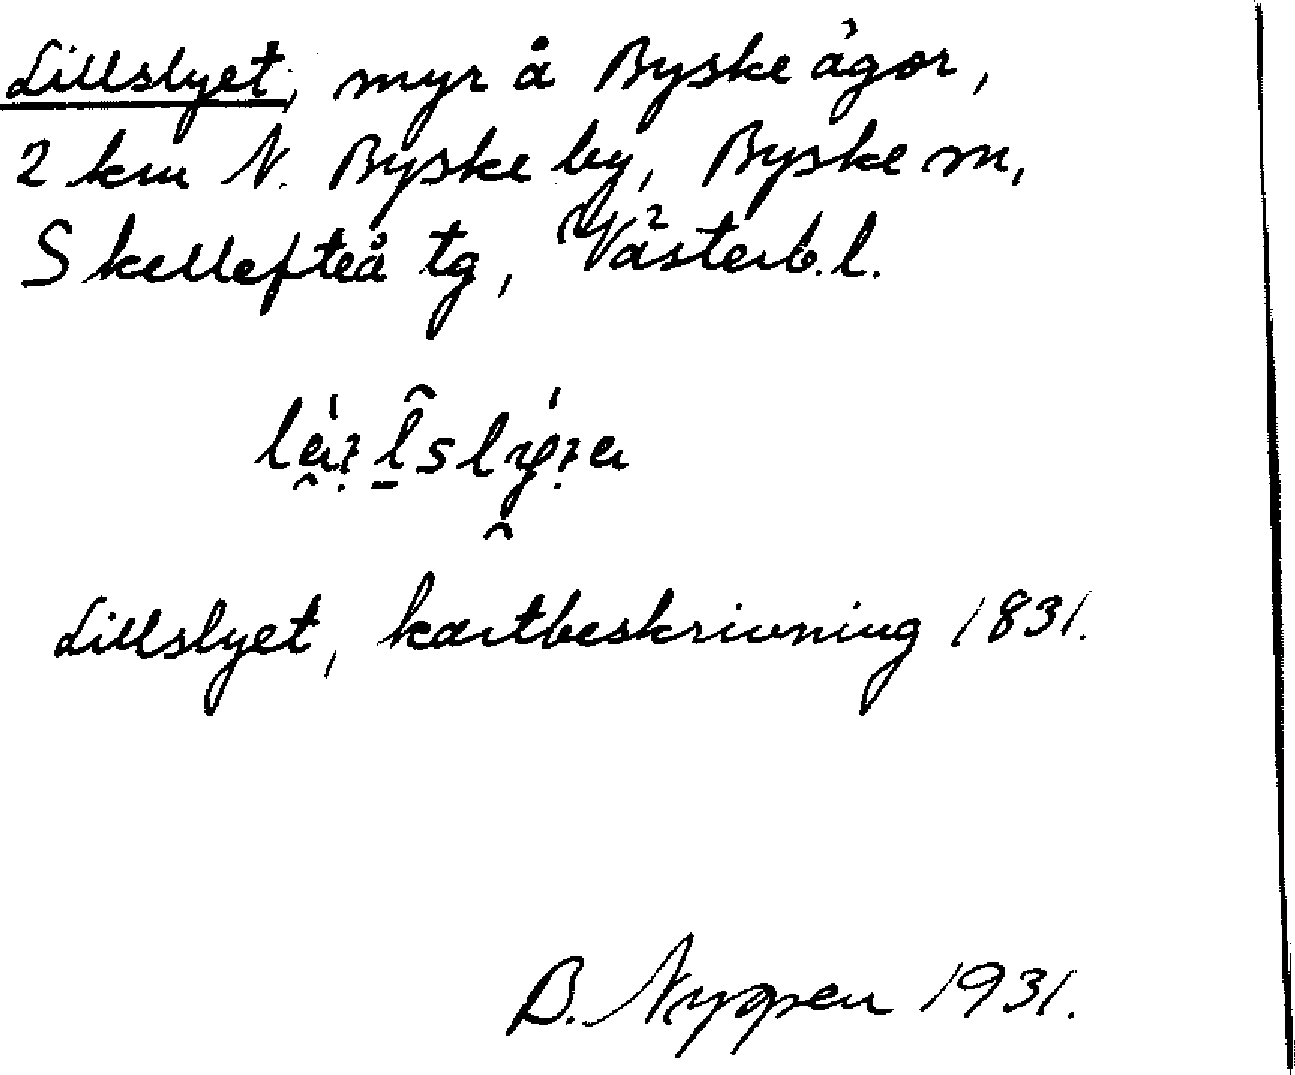 Lillslyet, myr å Byske ägor,
2 km N. Byske by, Byske sn,
Skellefteå tg, Västerb. l.
Lillslyet, kartbeskrivning 1831.
B. Nyppen 1931.